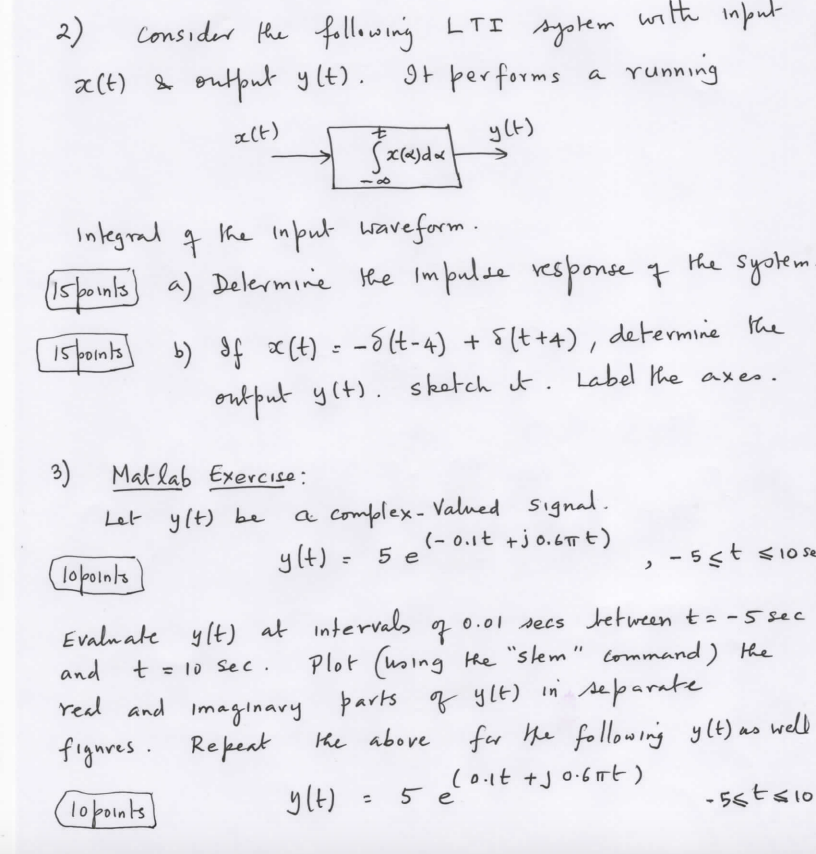 2) Consider the following LTI system with input
x(t) & output y(t). It performs a running
x(t) ∫_{-∞}^{t} x(α)dα y(t)
Integral of the input waveform.
15 points a) Determine the Impulse response of the system.
15 points b) If x(t) = -δ(t-4) + δ(t+4), determine the
output y(t). Sketch it. Label the axes.
3) Matlab Exercise:
Let y(t) be a complex-Valued signal.
10 points y(t) = 5 e^{(-0.1t + j0.6πt)}, -5 ≤ t ≤ 10 se
Evaluate y(t) at intervals of 0.01 secs between t = -5 sec
and t = 10 sec. Plot (using the "stem" command) the
real and imaginary parts of y(t) in separate
figures. Repeat the above for the following y(t) as well
10 points y(t) = 5 e^{(0.1t + j0.6πt)} -5 ≤ t ≤ 10